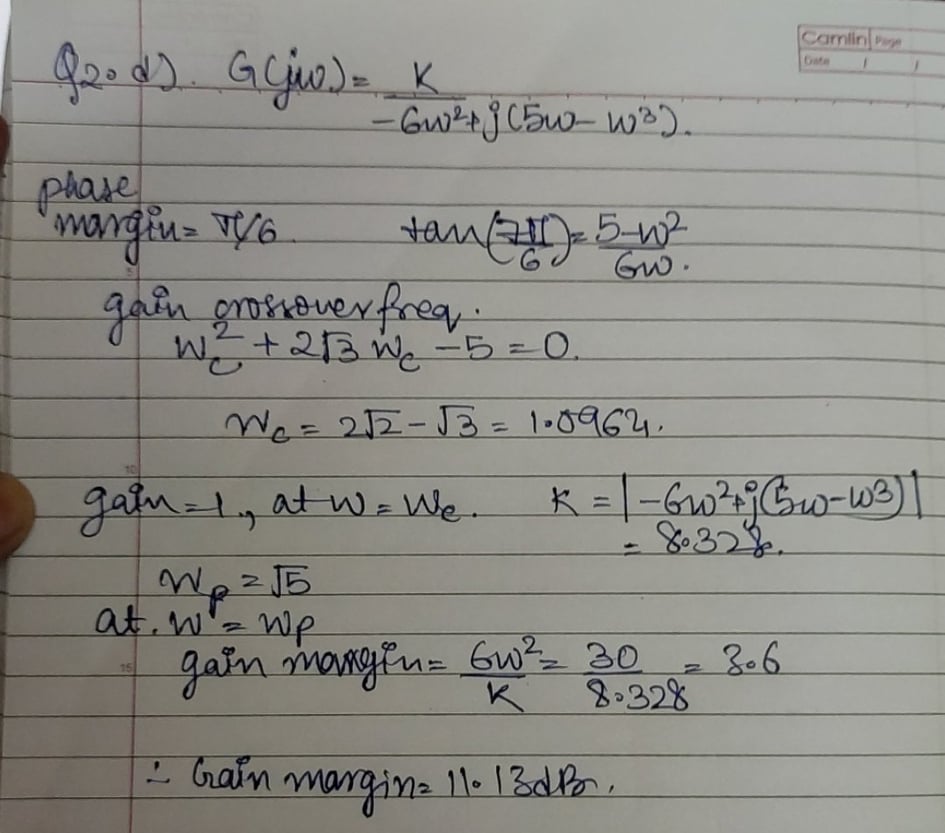 Camlin Page
Date / /
Q2. d). G(jω) = K / -6ω²+j(5ω-ω³).
phase
margin = π/6. tan(7π/6) = 5-ω² / 6ω.
gain crossover freq.
ω_c² + 2√3 ω_c - 5 = 0.
ω_c = 2√2 - √3 = 1.0964.
gain = 1, at ω = ω_c. K = |-6ω²+j(5ω-ω³)|
= 8.328.
ω_p = √5
at. ω = ω_p
gain margin = 6ω² / K = 30 / 8.328 = 3.6
∴ Gain margin = 11.13dB.